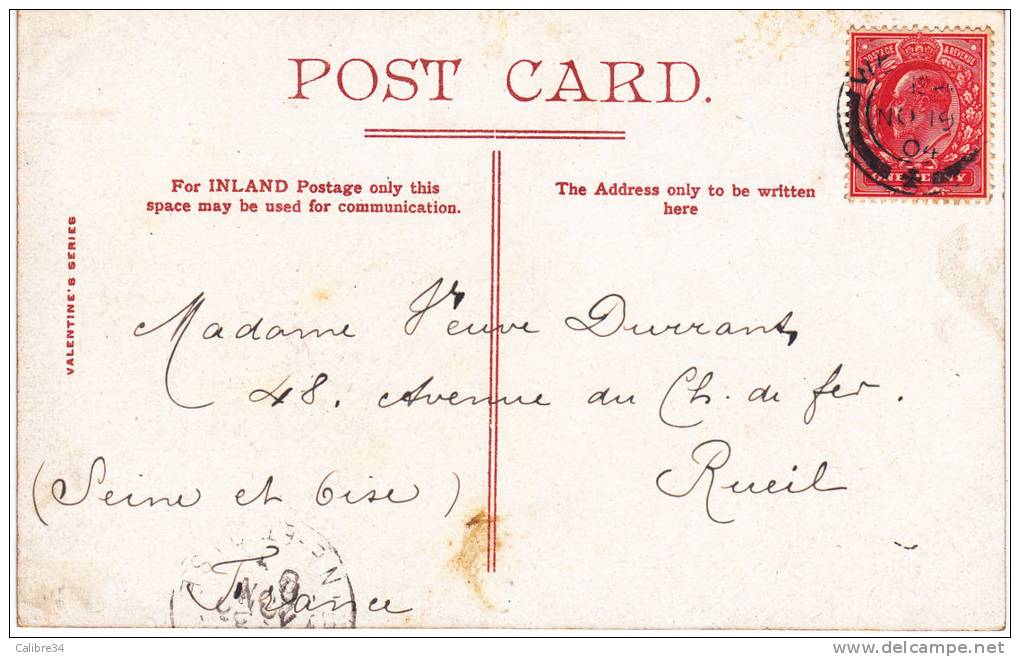 POST CARD.
For INLAND Postage only this
space may be used for communication.
The Address only to be written
here
VALENTINE'S SERIES
POSTAGE & REVENUE
NO 19
04
Madame Veuve Durrant,
48. Avenue du Ch. de fer.
Rueil
(Seine et Oise)
France
Calibre34
delcampe.net